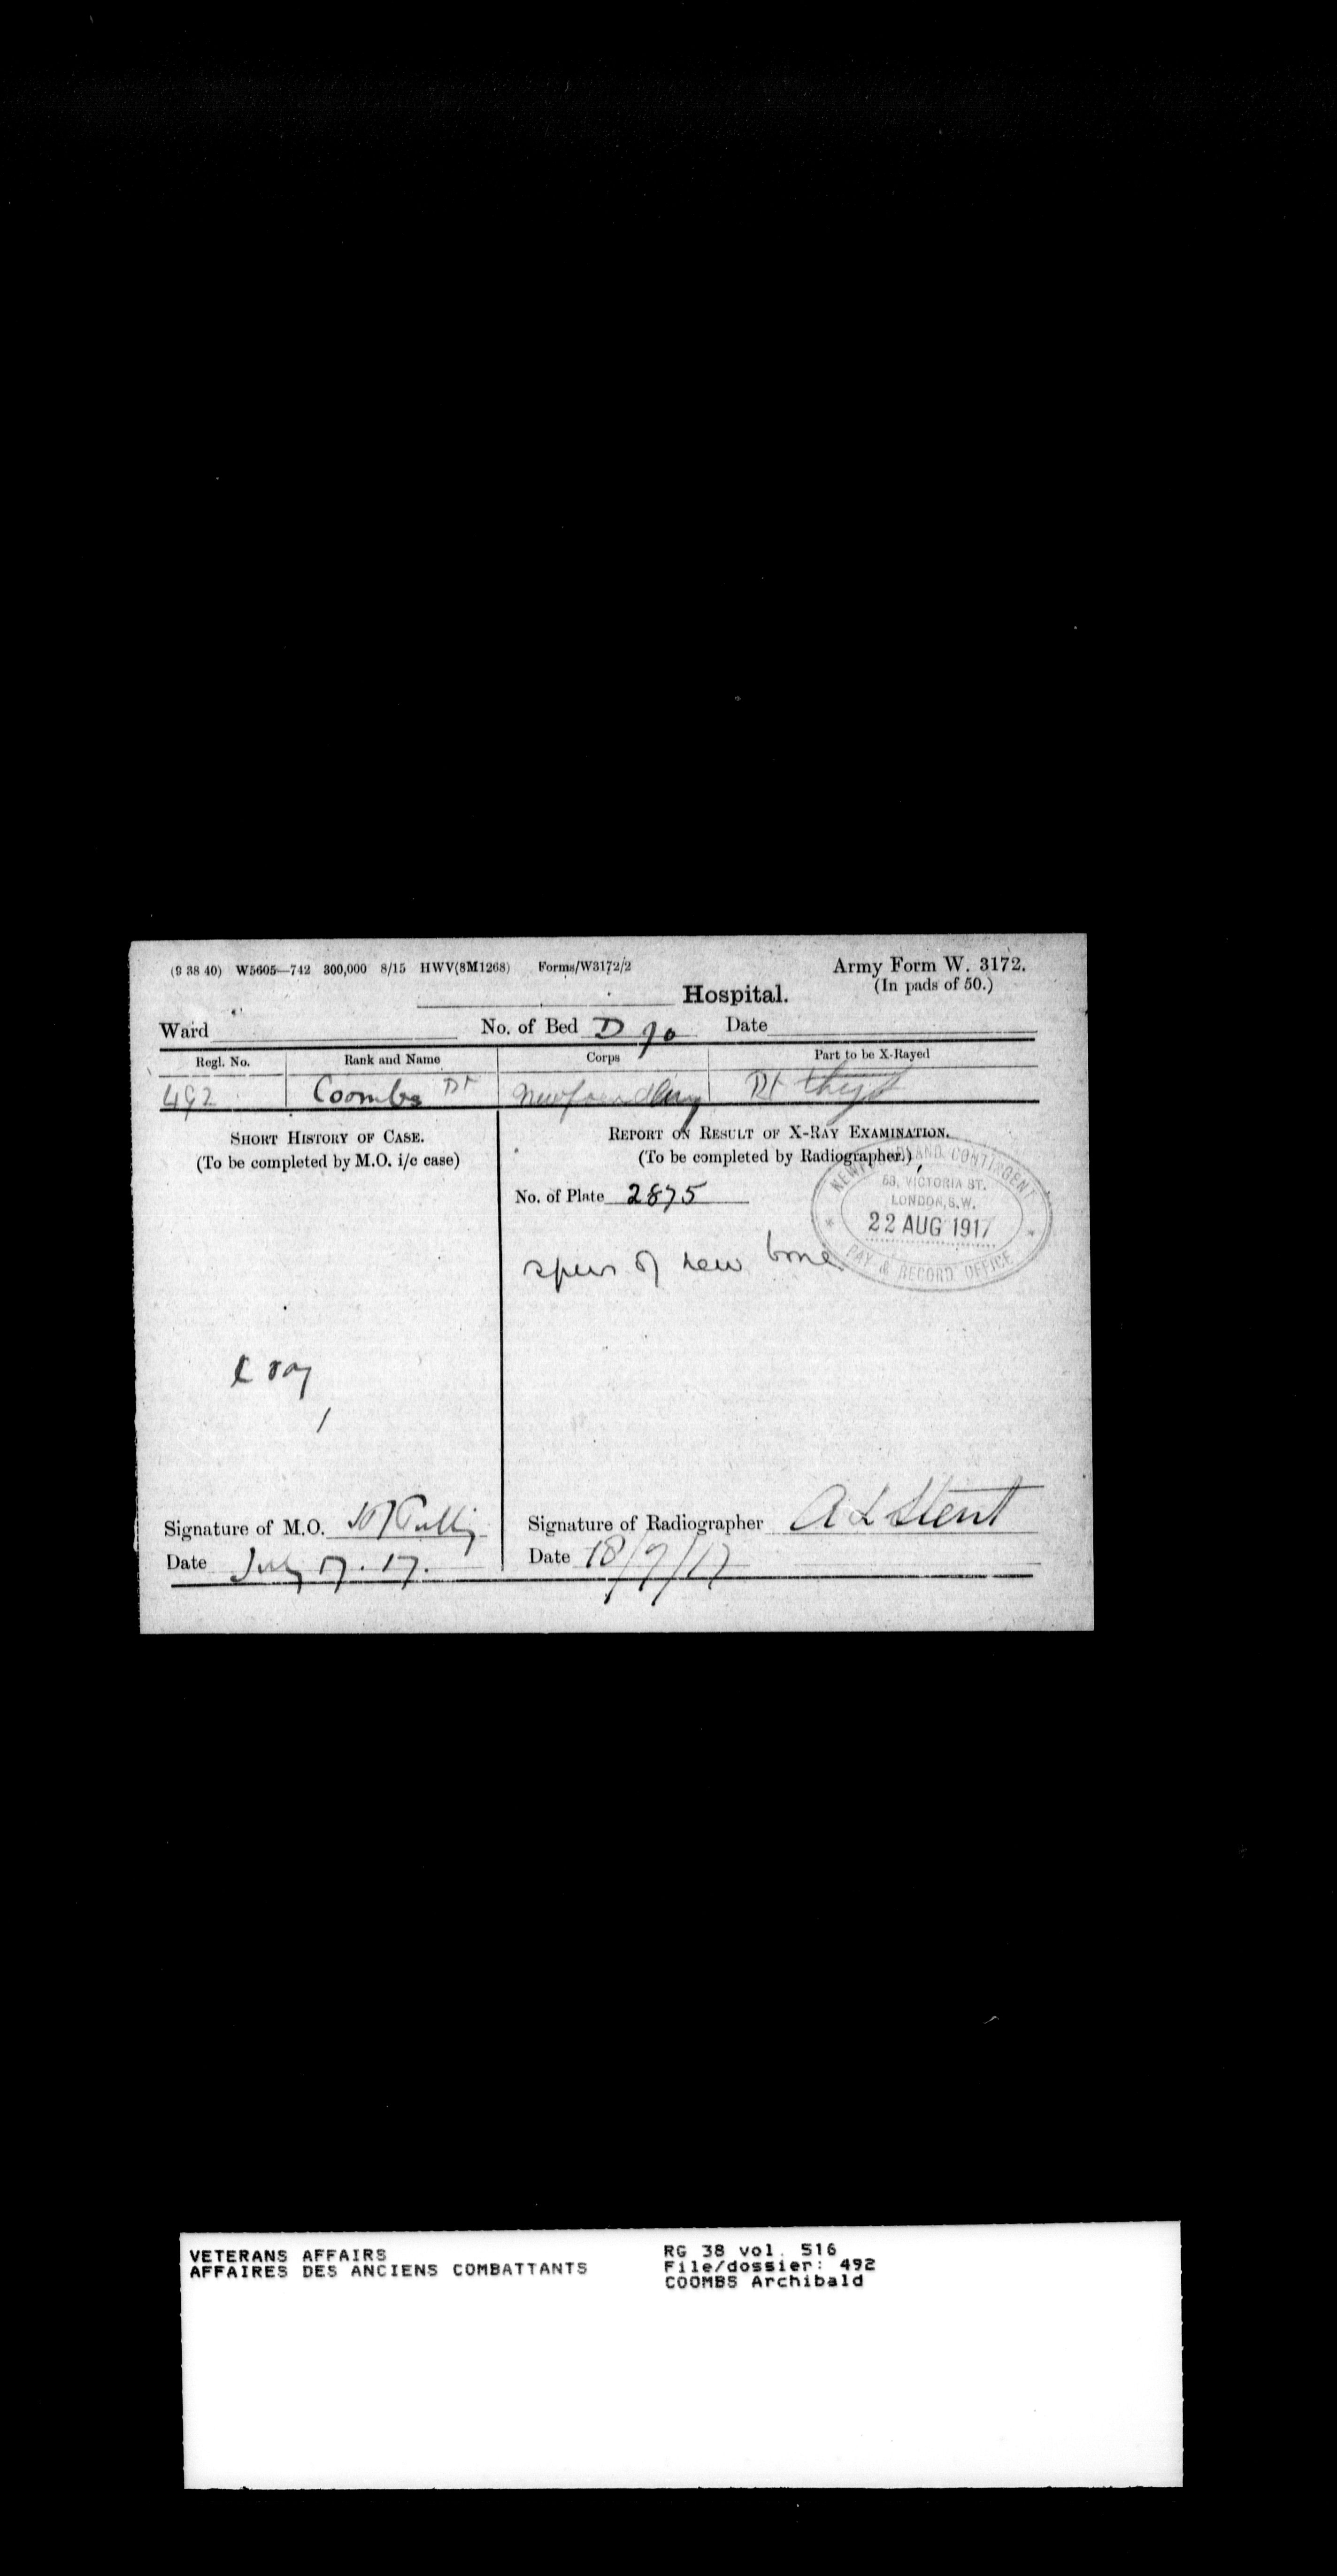 (9 38 40) W5605—742 300,000 8/15 HWV(8M1268) Forms/W3172/2
Army Form W. 3172.
(In pads of 50.)
Hospital.
Ward No. of Bed D 70 Date
Regl. No. Rank and Name Corps Part to be X-Rayed
492 Coombs Pt Rt thigh
SHORT HISTORY OF CASE.
(To be completed by M.O. i/c case)
REPORT ON RESULT OF X-RAY EXAMINATION.
(To be completed by Radiographer.)
No. of Plate 2875
NEWFOUNDLAND CONTINGENT
58, VICTORIA ST.
LONDON, S.W.
22 AUG 1917
PAY & RECORD OFFICE
spur of new bone
X ray
Signature of M.O.
Date July 17. 17.
Signature of Radiographer A L Stent
Date 18/7/17
VETERANS AFFAIRS
AFFAIRES DES ANCIENS COMBATTANTS
RG 38 vol. 516
File/dossier: 492
COOMBS Archibald